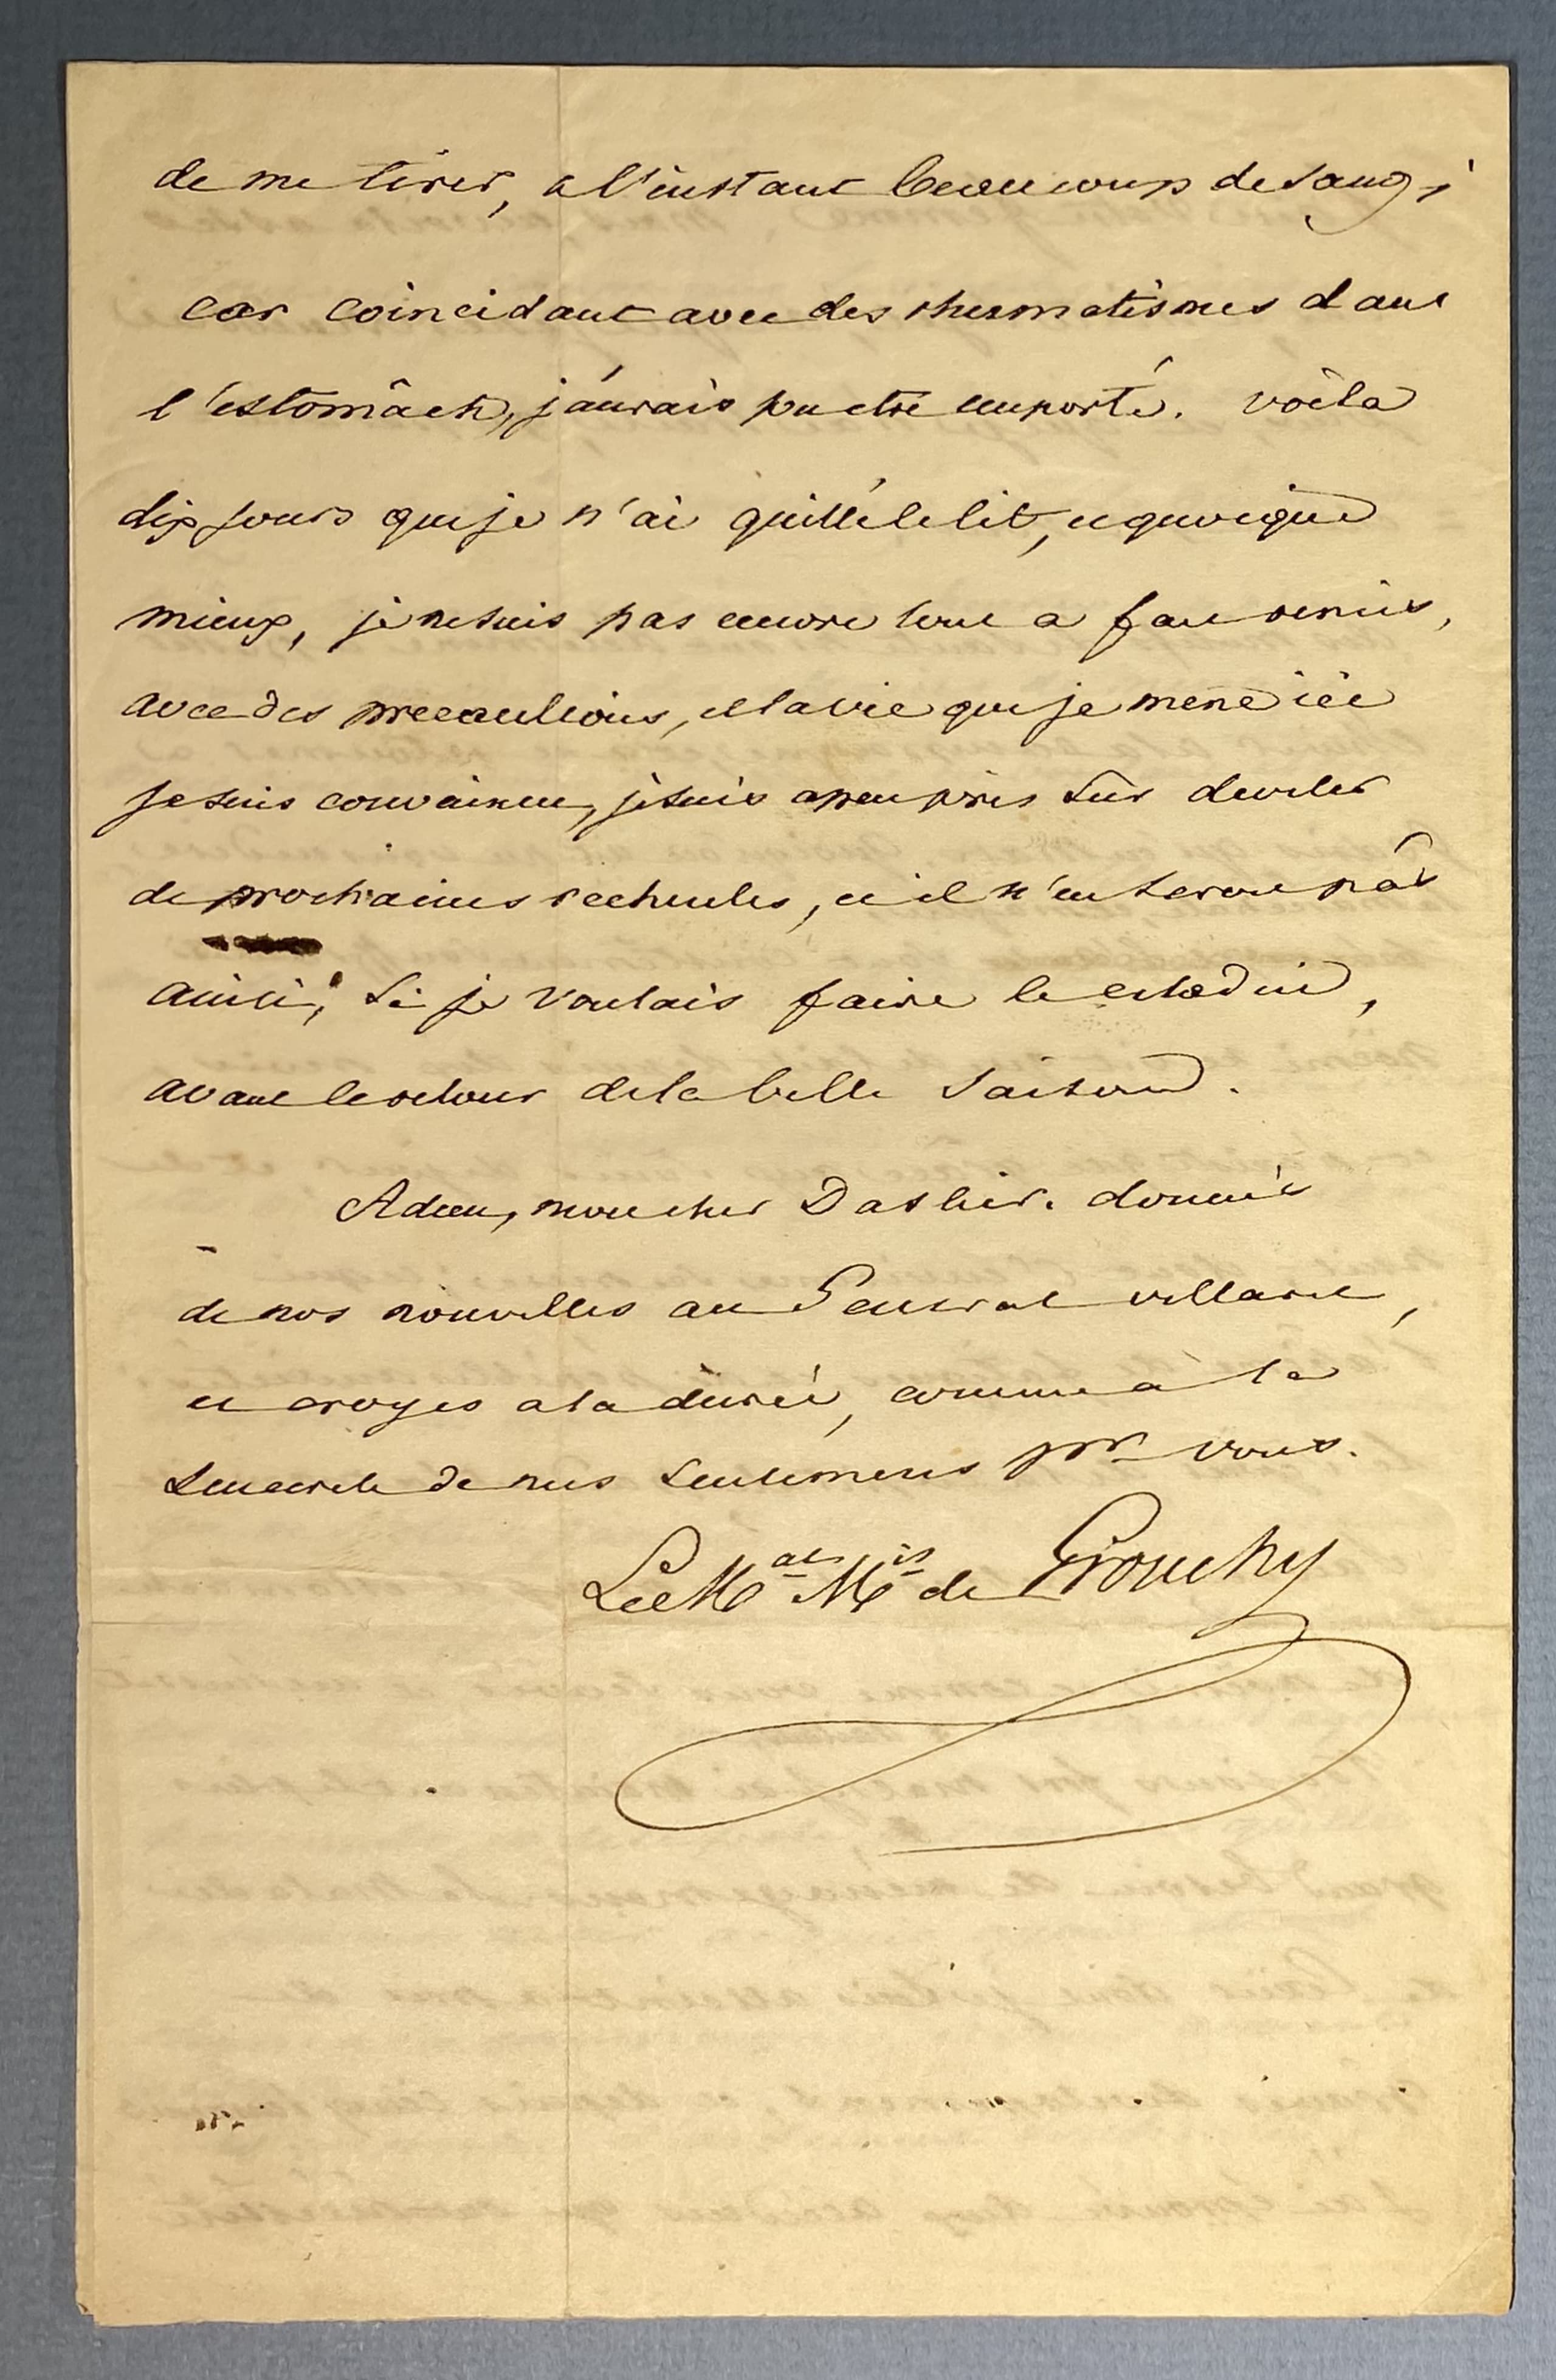 de me tirer, a l'instant beaucoup de sang,
car coincidant avec des rhumatismes dans
l'estomâch, j'aurais pu etre emporté. voila
dix jours que je n'ai quitté le lit, et quoique
mieux, je ne suis pas encore tout a fait remis,
avec des precautions, et la vie que je mene ici
je suis convaincu, je suis a peu près sur d'eviter
de prochaines rechutes, et il n'en seroit pas
ainsi, si je voulais faire le citadin,
avant le retour de la belle saison.
Adieu, mon cher Daslier. donnés
de nos nouvelles au General
et croyes a la durée, comme à la
sincerité de mes sentimens pr vous.
Le Mal Mis de Grouchy